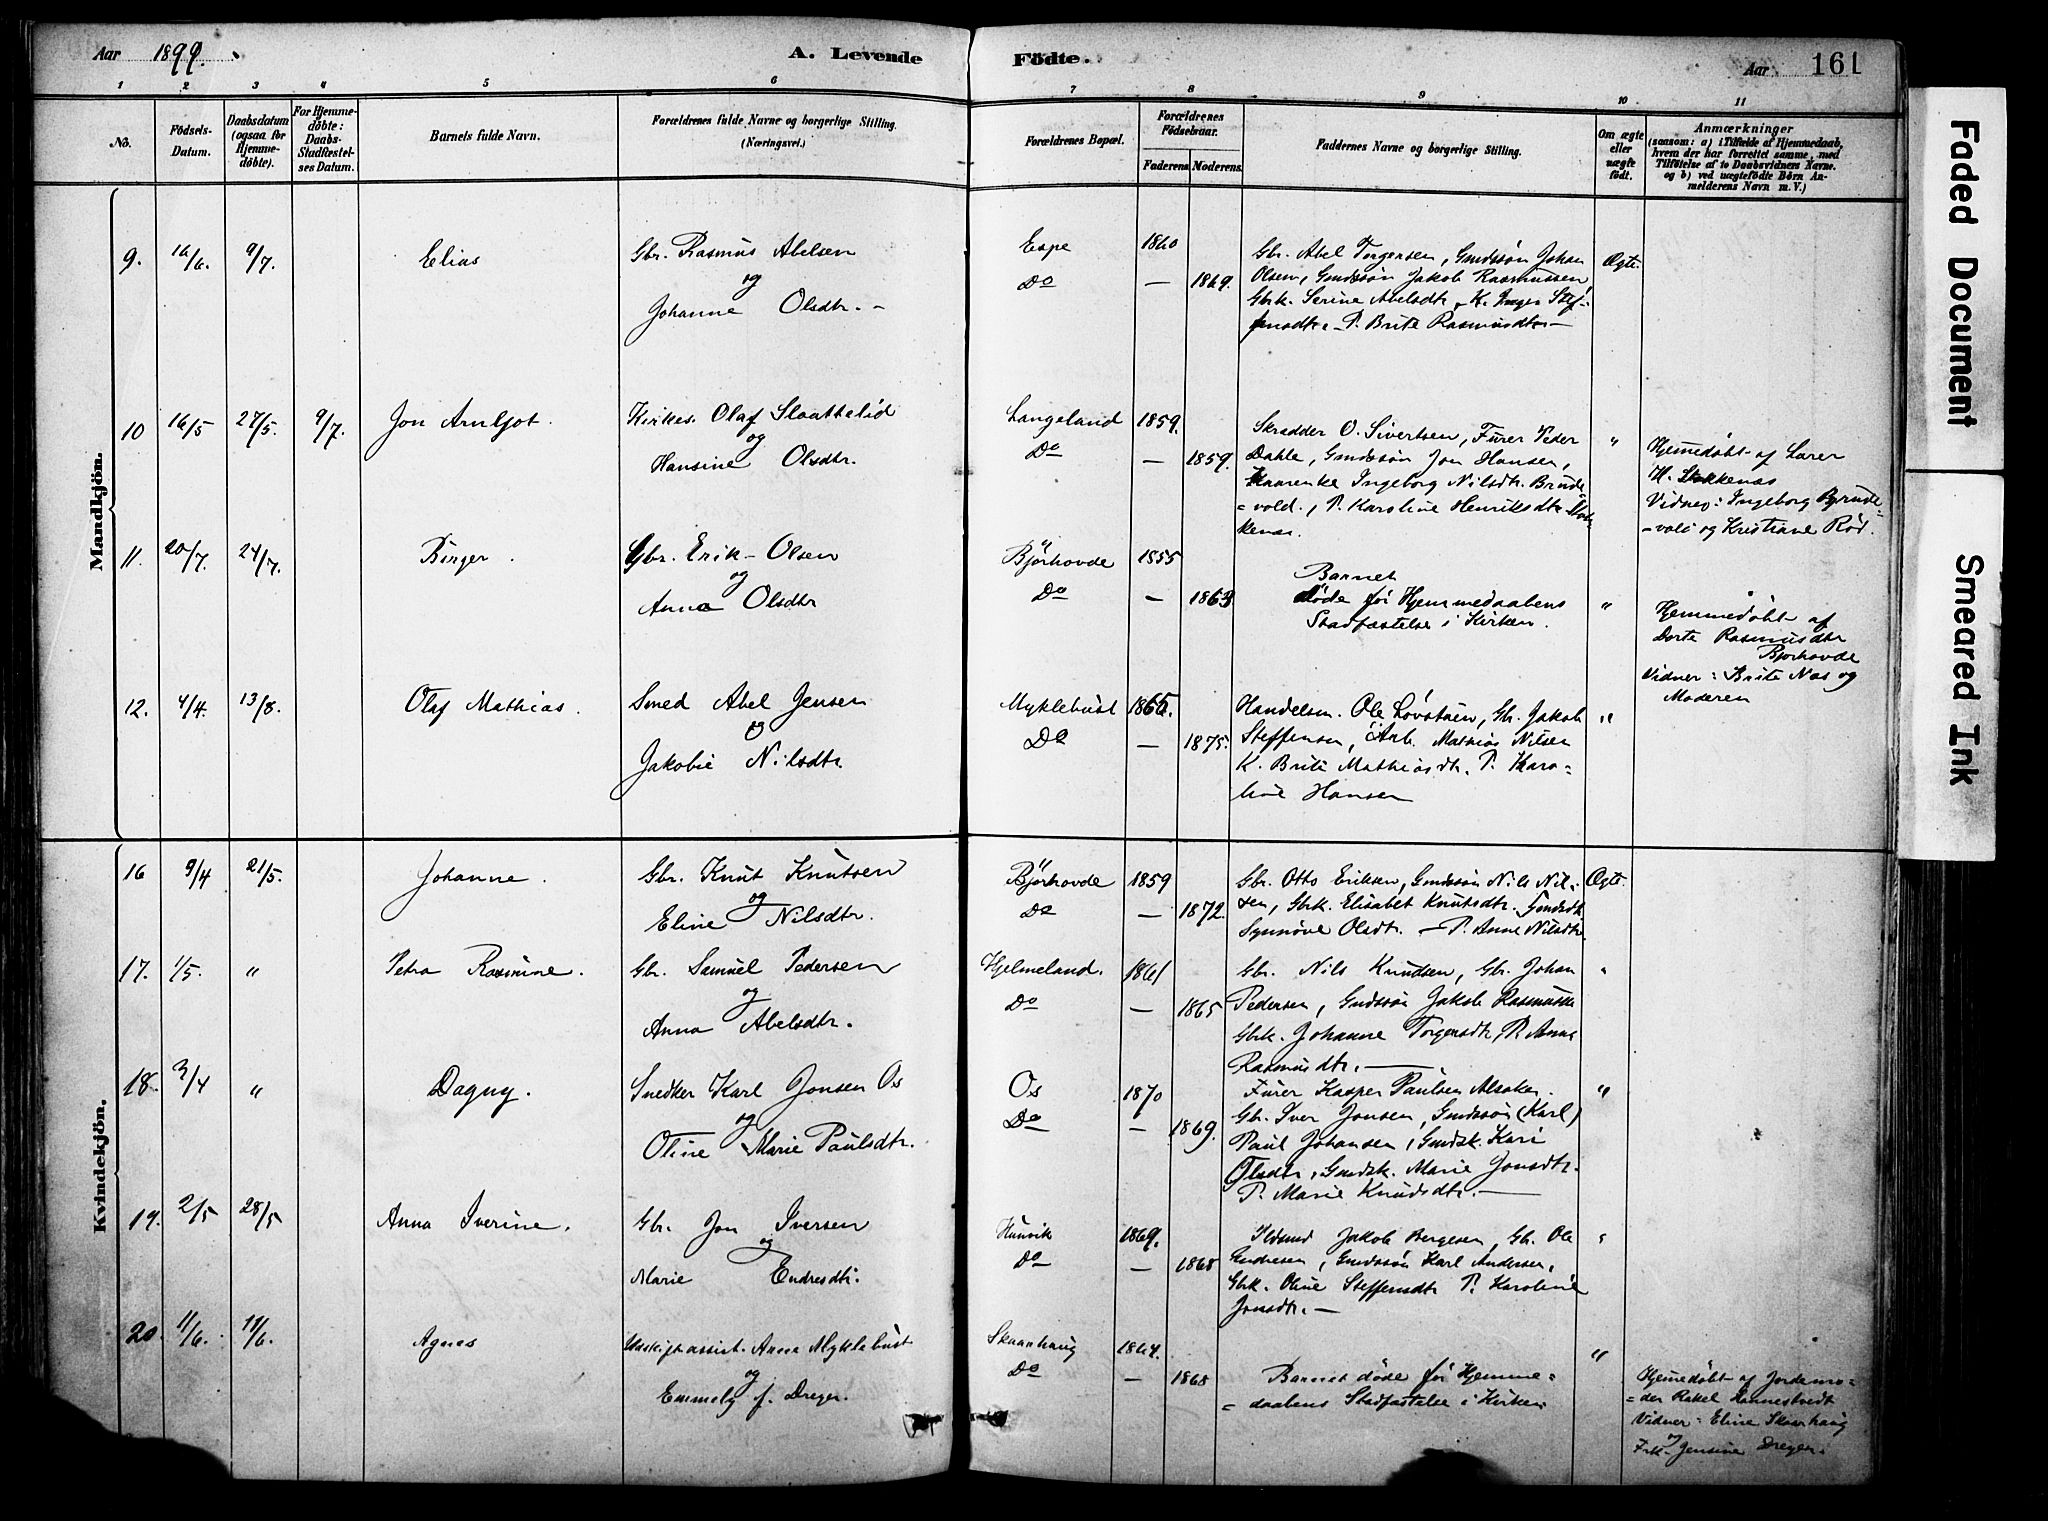 Aar 1899.
A. Levende Födte.
Aar 161
1 2 3 4 5 6 7 8 9 10 11
No.
Födsels-Datum.
Daabsdatum (ogsaa for Hjemme-döbte).
For Hjemme-döbte: Daabs-Stadfæstel-ses Datum.
Barnets fulde Navn.
Forældrenes fulde Navne og borgerlige Stilling.
(Næringsvei.)
Forældrenes Bopæl.
Forældrenes Födselsaar.
Faderens. Moderens.
Faddernes Navne og borgerlige Stilling.
Om ægte eller uægte födt.
Anmærkninger
(saasom: a) i Tilfælde af Hjemmedaab,
hvem der har forrettet samme, med
Tilföielse af to Daabsvidners Navne.
og b) ved uægtefödte Börn An-
melderens Navn m. V.)
Mandkjön.
9. 16/6. 9/7. Elias
Gbr. Rasmus Abelsen
og
Johanne Olsdtr. -
Espe 1860
Do — 1869.
Gbr. Abel Torgersen, Gmdssøn Johan
Olsen, Gmdssøn Jakob Rasmussen,
Gbrk. Serine Abelsdtr, K. Inger Stef-
fensdtr. P. Brite Rasmusdtr. —
Ægte.
10 16/5 27/5. 9/7. Jon Arnljot.
Kirkes. Olaf Slaattelid
og
Hansine Olsdtr.
Langeland 1859.
Do — 1859.
Skrædder O. Sivertsen, Furer Peder
Dahle, Gmdssøn Jon Hansen,
Ingeborg Nilsdtr. Brude-
=vold., P. Karoline Henriksdtr
kenæs.
"
Hjemedøbt af Lærer
H. Stakkenæs
Vidner: Ingeborg Brude-
-vold og Kristiane Rød.
11. 20/7. 24/7. Birger.
Gbr. Erik Olsen
og
Anna Olsdtr
Bjørhovde 1855
Do — 1863.
Barnet
døde før Hjemmedaabens
Stadfæstelse i Kirken.
"
Hjemmedøbt af
Dorte Rasmusdtr
Bjørhovde
Vidner: Brite Næs og
Moderen
12. 4/4. 13/8. Olaf Mathias.
Smed Abel Jensen
og
Jakobie Nilsdtr
Myklebust 1865.
Do — 1875.
Handelsm. Ole Løvstuen, Gbr. Jakob
Steffensen, Arb. Mathias Nilsen
K. Brite Mathiasdtr. P. Karo-
line Hansen
"
Kvindekjön.
16 9/4 21/5. Johanne.
Gbr. Knut Knutsen
og
Eline Nilsdtr.
Bjørhovde 1859
Do — 1872.
Gbr. Otto Eriksen, Gmdssøn Nils Nil-
sen, Gbrk. Elisabet Knutsdtr. Gmdsdtr.
Synnøve Olsdtr. — P. Anne Nilsdtr.
Ægte.
17. 1/5. " Petra Rasmine.
Gbr. Samuel Pedersen
og
Anna Abelsdtr.
Hjelmeland. 1861
Do — 1865
Gbr. Nils Knudsen, Gbr. Johan
Pedersen, Gmdssøn Jakob Rasmussen
Gbrk. Johanne Torgersdtr, P. Anna
Rasmusdtr. —
"
18. 3/4 " Dagny.
Snedker Karl Jonsen Os
og
Oline Marie Paulsdtr.
Os 1870
Do — 1869.
Furer Kasper Paulsen Alsaker.
Gbr. Iver Jonsen, Gmdssøn (Karl)
Paul Johansen, Gmdsk. Kari
Olsdtr, Gmdsk. Marie Jonsdtr.
P. Marie Knudsdtr. —
"
19. 2/5 28/5 Anna Iverine.
Gbr. Jon Iversen
og
Marie Endresdtr.
Hunvik 1869.
Do — 1868
Jakob Bergesen, Gbr. Ole
Endresen, Gmdssøn Karl Andersen,
Gbrk. Oline Steffensdtr P. Karoline
Jonsdtr. —
"
20. 11/6. 11/6. Agnes
Udskiftassist. Myklebust
og
Emmely f. Dreyer.
Skaarhaug 1864.
Do — 1868
Barnet døde før Hjemme=
=daabens Stadfæstelse i Kirken.
"
Hjemedøbt af Jordemo-
=der Rakel Hannestvedt
Vidner: Eline Skaarhaug
og
Frk. Jensine Dreyer.
Faded Document
Smeared Ink